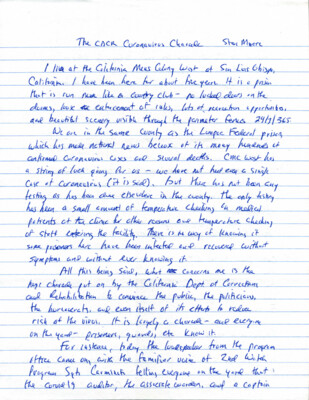 The CDCR Coronavirus Charade Stan Moore
I live at the California Mens Colony West at San Luis Obispo,
California. I have been here for about five years. It is a prison
that is run more like a country club - no locked doors on the
dorms, lax enforcement of rules, lots of recreation opportunities,
and beautiful scenery visible through the perimeter fences 24/7/365
We are in the same county as the Lompoc Federal prison,
which has made national news because of its many hundreds of
confirmed coronavirus cases and several deaths. CMC West has
a string of luck going for us - we have not had even a single
case of coronavirus (it is said). But there has not been any
testing as has been done elsewhere in this country. The only testing
has been a small amount of temperature checking on medical
patients at the clinic for other reasons and temperature checking
of staff entering the facility. There is no way of knowing if
some prisoners here have been infected and recovered without
symptoms and without ever knowing it.
All this being said, what concerns me is the
huge charade put on by the California Dept of Corrections
and Rehabilitation to convince the public, the politicians,
the bureaucrats, and even itself of its efforts to reduce
risk of the virus. It is largely a charade - and everyone
on the yard - prisoners, guards, etc know it.
For instance, today the loudspeaker from the program
office came on with the familiar voice of 2nd Watch
Program Sgt. telling everyone on the yard that
the comes auditor, the associate warden, and a captain